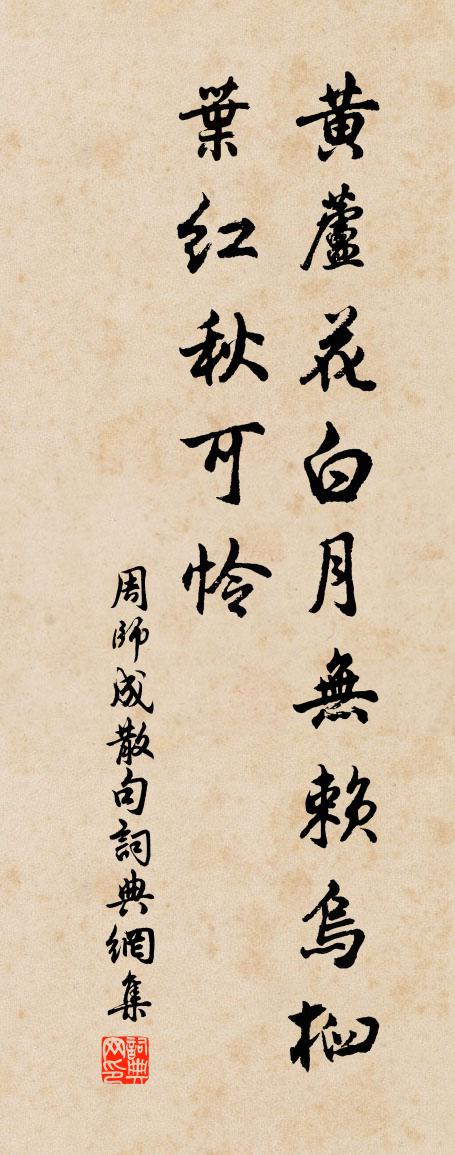 黄蘆花白月無賴烏桕
葉紅秋可憐
周師成散句詞典網集
詞典网印